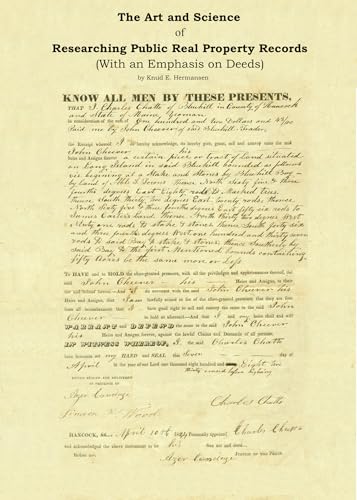 The Art and Science
of
Researching Public Real Property Records
(With an Emphasis on Deeds)
by Knud E. Hermansen
KNOW ALL MEN BY THESE PRESENTS,
THAT I Charles Chatto of Bluehill in County of Hancock
and State of Maine, Yeoman
in consideration of the sum of One hundred and two Dollars and
Paid me by John Cheever of said Bluehill Trader,
the Receipt whereof I do hereby acknowledge, do hereby give, grant, sell and convey unto the said
John Cheever his
Heirs and Assigns forever a certain piece or tract of land situated
on Long Island in said Bluehill bounded as follows
viz begining at a Stake and Stones by Bluehill Bay
by land of thence North Sixty five & three
fourths degrees East Eighty rods to Marked tree,
thence South thirty two degrees East twenty rods, thence
North Sixty five & three fourths degrees East fifty six rods to
James Carters land thence North thirty two degrees West
Sixty one rods to stake & stone thence South forty six
and three fourths degrees West one hundred and thirty seven
rods to said Bay to stake & stones, thence Southerly by
said Bay to the first Mentioned bounds containing
fifty acres be the same more or less
To HAVE and to HOLD the afore-granted premises, with all the privileges and appurtenances thereof, to the
said John Cheever his Heirs and Assigns, to their
use and behoof forever. And I do covenant with the said John Cheever his
Heirs and Assigns, that I am lawfully seized in fee of the afore-granted premises; that they are free
from all incumbrances that I have good right to sell and convey the same to the said John
Cheever to hold as aforesaid. And that I and my heirs shall and will
WARRANT and DEFEND the same to the said John Cheever
his Heirs and Assigns forever, against the lawful Claims and Demands of all persons.
IN WITNESS WHEREOF, I the said Charles Chatto
have hereunto set my HAND and SEAL this Seven day of
April in the year of our Lord one thousand eight hundred and
SIGNED, SEALED AND DELIVERED
IN PRESENCE OF
Charles Chatto
Wood
HANCOCK, ss. April 10th Personally Appeared Charles Chatto
and acknowledged the above instrument to be his free act and deed.
Before me, JUSTICE OF THE PEACE.